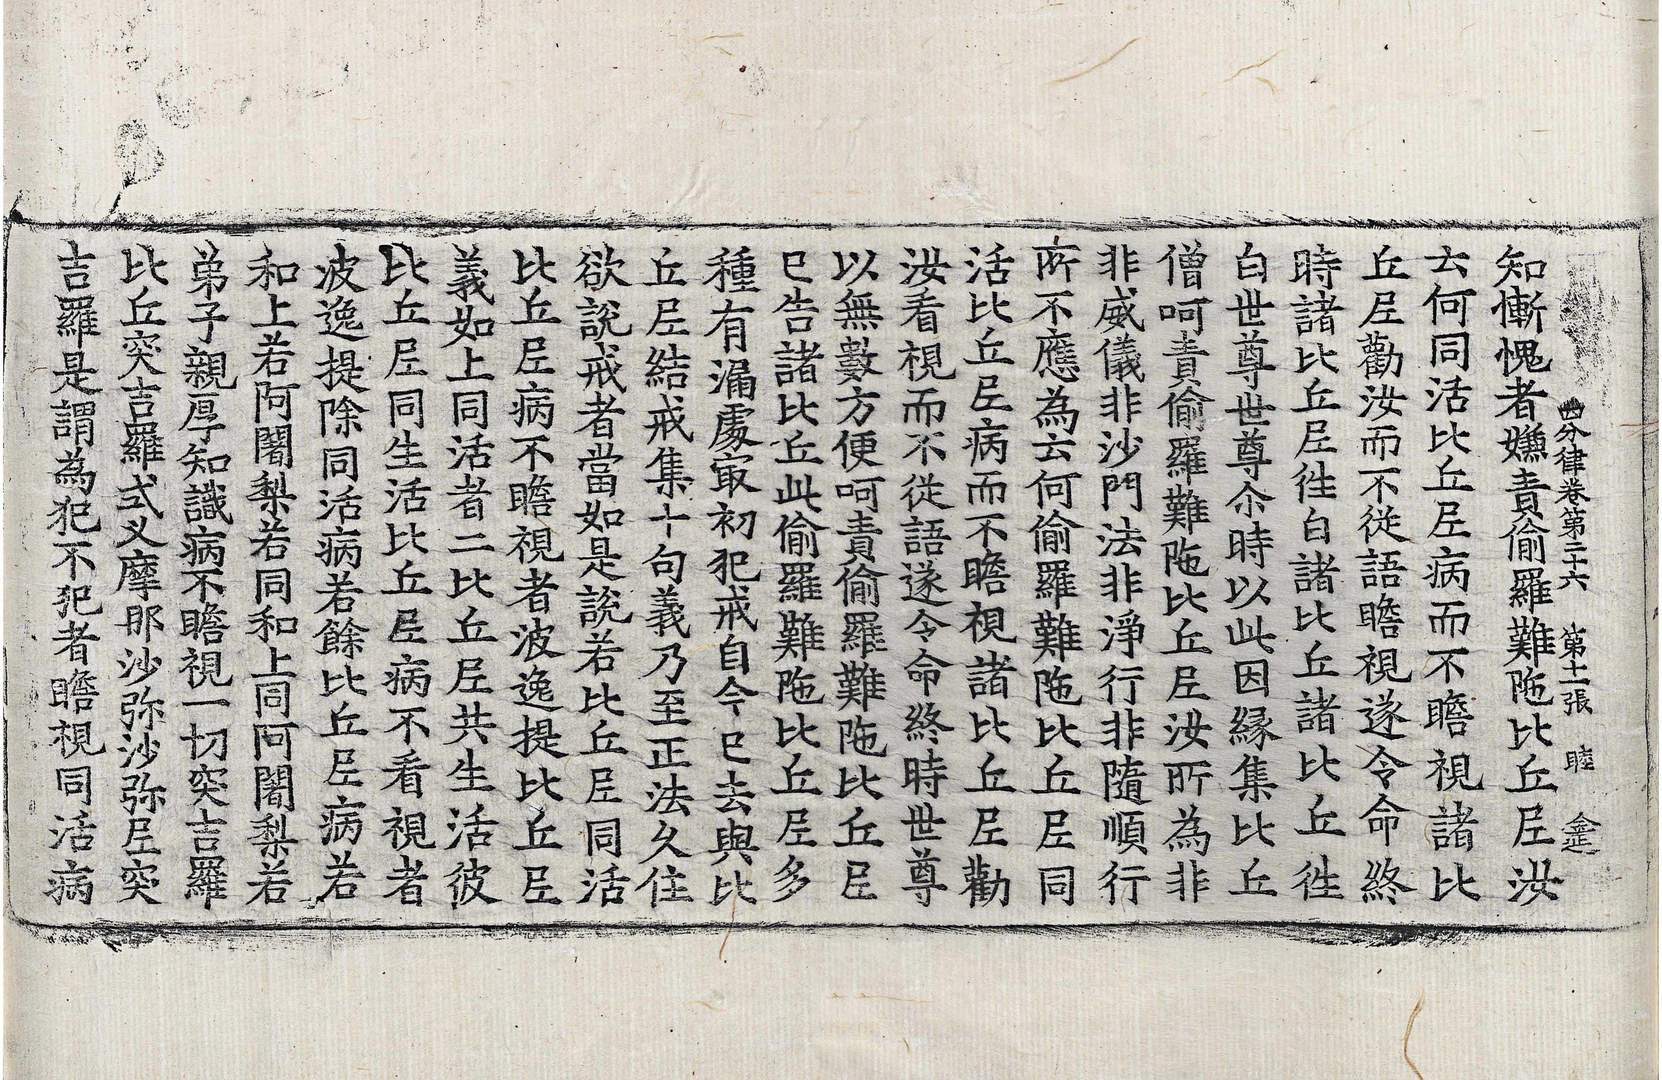 四分律卷第二十六　第十一張　睦
知慚愧者嫌責偷羅難陁比丘尼汝
云何同活比丘尼病而不瞻視諸比
丘尼勸汝而不從語瞻視遂令命終
時諸比丘尼徃白諸比丘諸比丘徃
白世尊世尊尒時以此因縁集比丘
僧呵責偷羅難陁比丘尼汝所為非
非威儀非沙門法非淨行非隨順行
所不應為云何偷羅難陁比丘尼同
活比丘尼病而不瞻視諸比丘尼勸
汝看視而不從語遂令命終時世尊
以無數方便呵責偷羅難陁比丘尼
已告諸比丘此偷羅難陁比丘尼多
種有漏處冣初犯戒自今已去與比
丘尼結戒集十句義乃至正法久住
欲說戒者當如是說若比丘尼同活
比丘尼病不瞻視者波逸提比丘尼
義如上同活者二比丘尼共生活彼
比丘尼同生活比丘尼病不看視者
波逸提除同活病若餘比丘尼病若
和上若阿闍梨若同和上同阿闍梨若
弟子親厚知識病不瞻視一切突吉羅
比丘突吉羅式叉摩那沙弥沙弥尼突
吉羅是謂為犯不犯者瞻視同活病